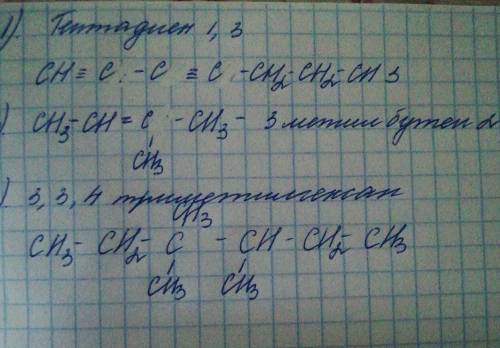 1). Гептадиен 1,3
CH ≡ C - C ≡ C - CH2 - CH2 - CH3
). CH3 - CH = C - CH3 - 3 метил бутен 2
CH3
). 3,3,4 триметилгексан
CH3
CH3 - CH2 - C - CH - CH2 - CH3
CH3 CH3